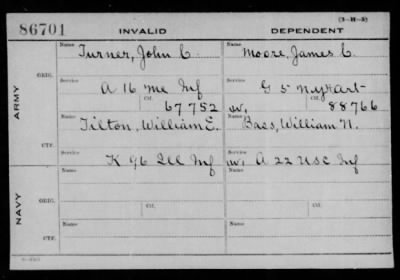 (3-H-3)
86701 INVALID DEPENDENT
Name Turner, John C. Name Moore, James C.
ARMY
ORIG. Service A 16 Me Inf Service G 5 N.Y.H.art
Ctf. 67752 W. Ctf. 88766
Name Tilton, William E. Name Baes, William N.
CTF. Service K 96 Ill Inf Service W. A 22 USC Inf
NAVY
Name Name
ORIG. Service Ctf. Service Ctf.
Name Name
CTF.